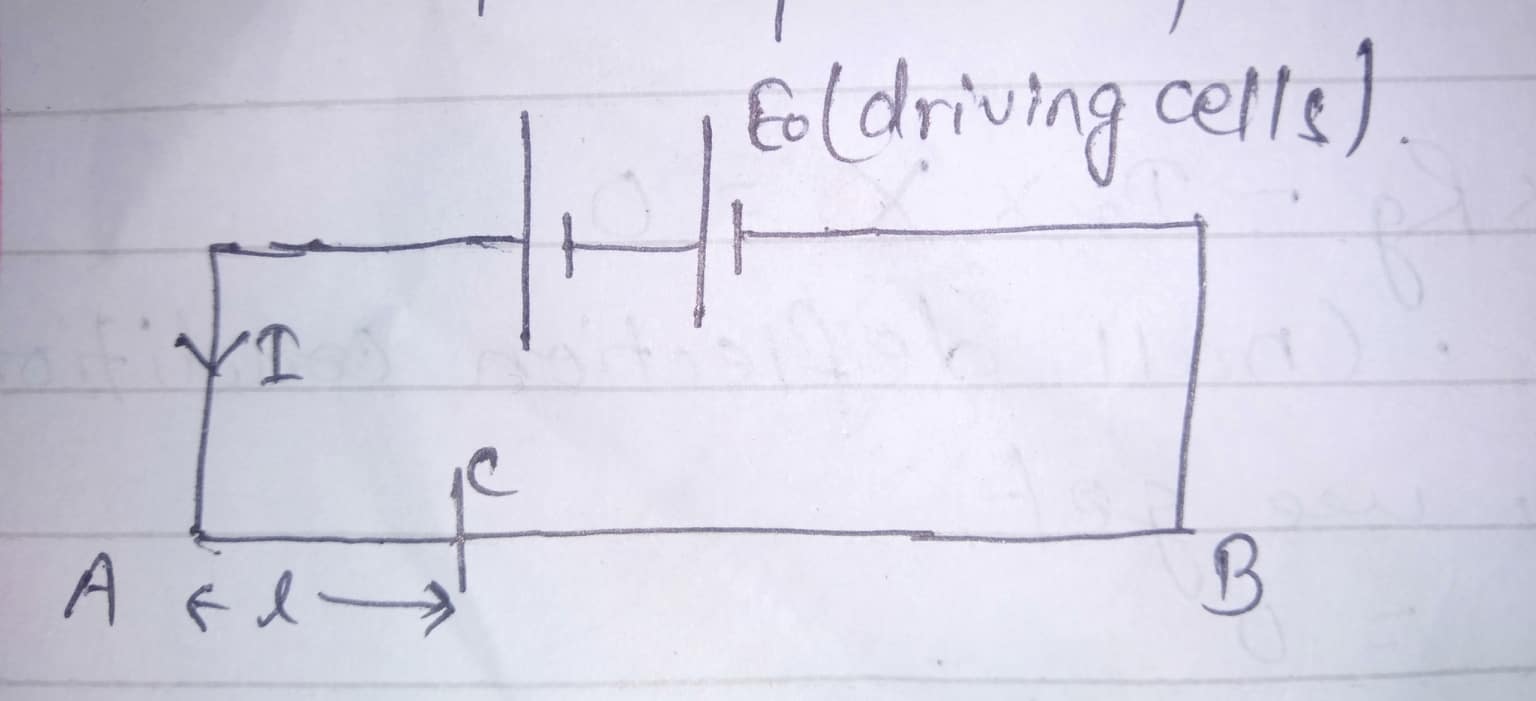 E₀(driving cells).
I
C
A ← l → B